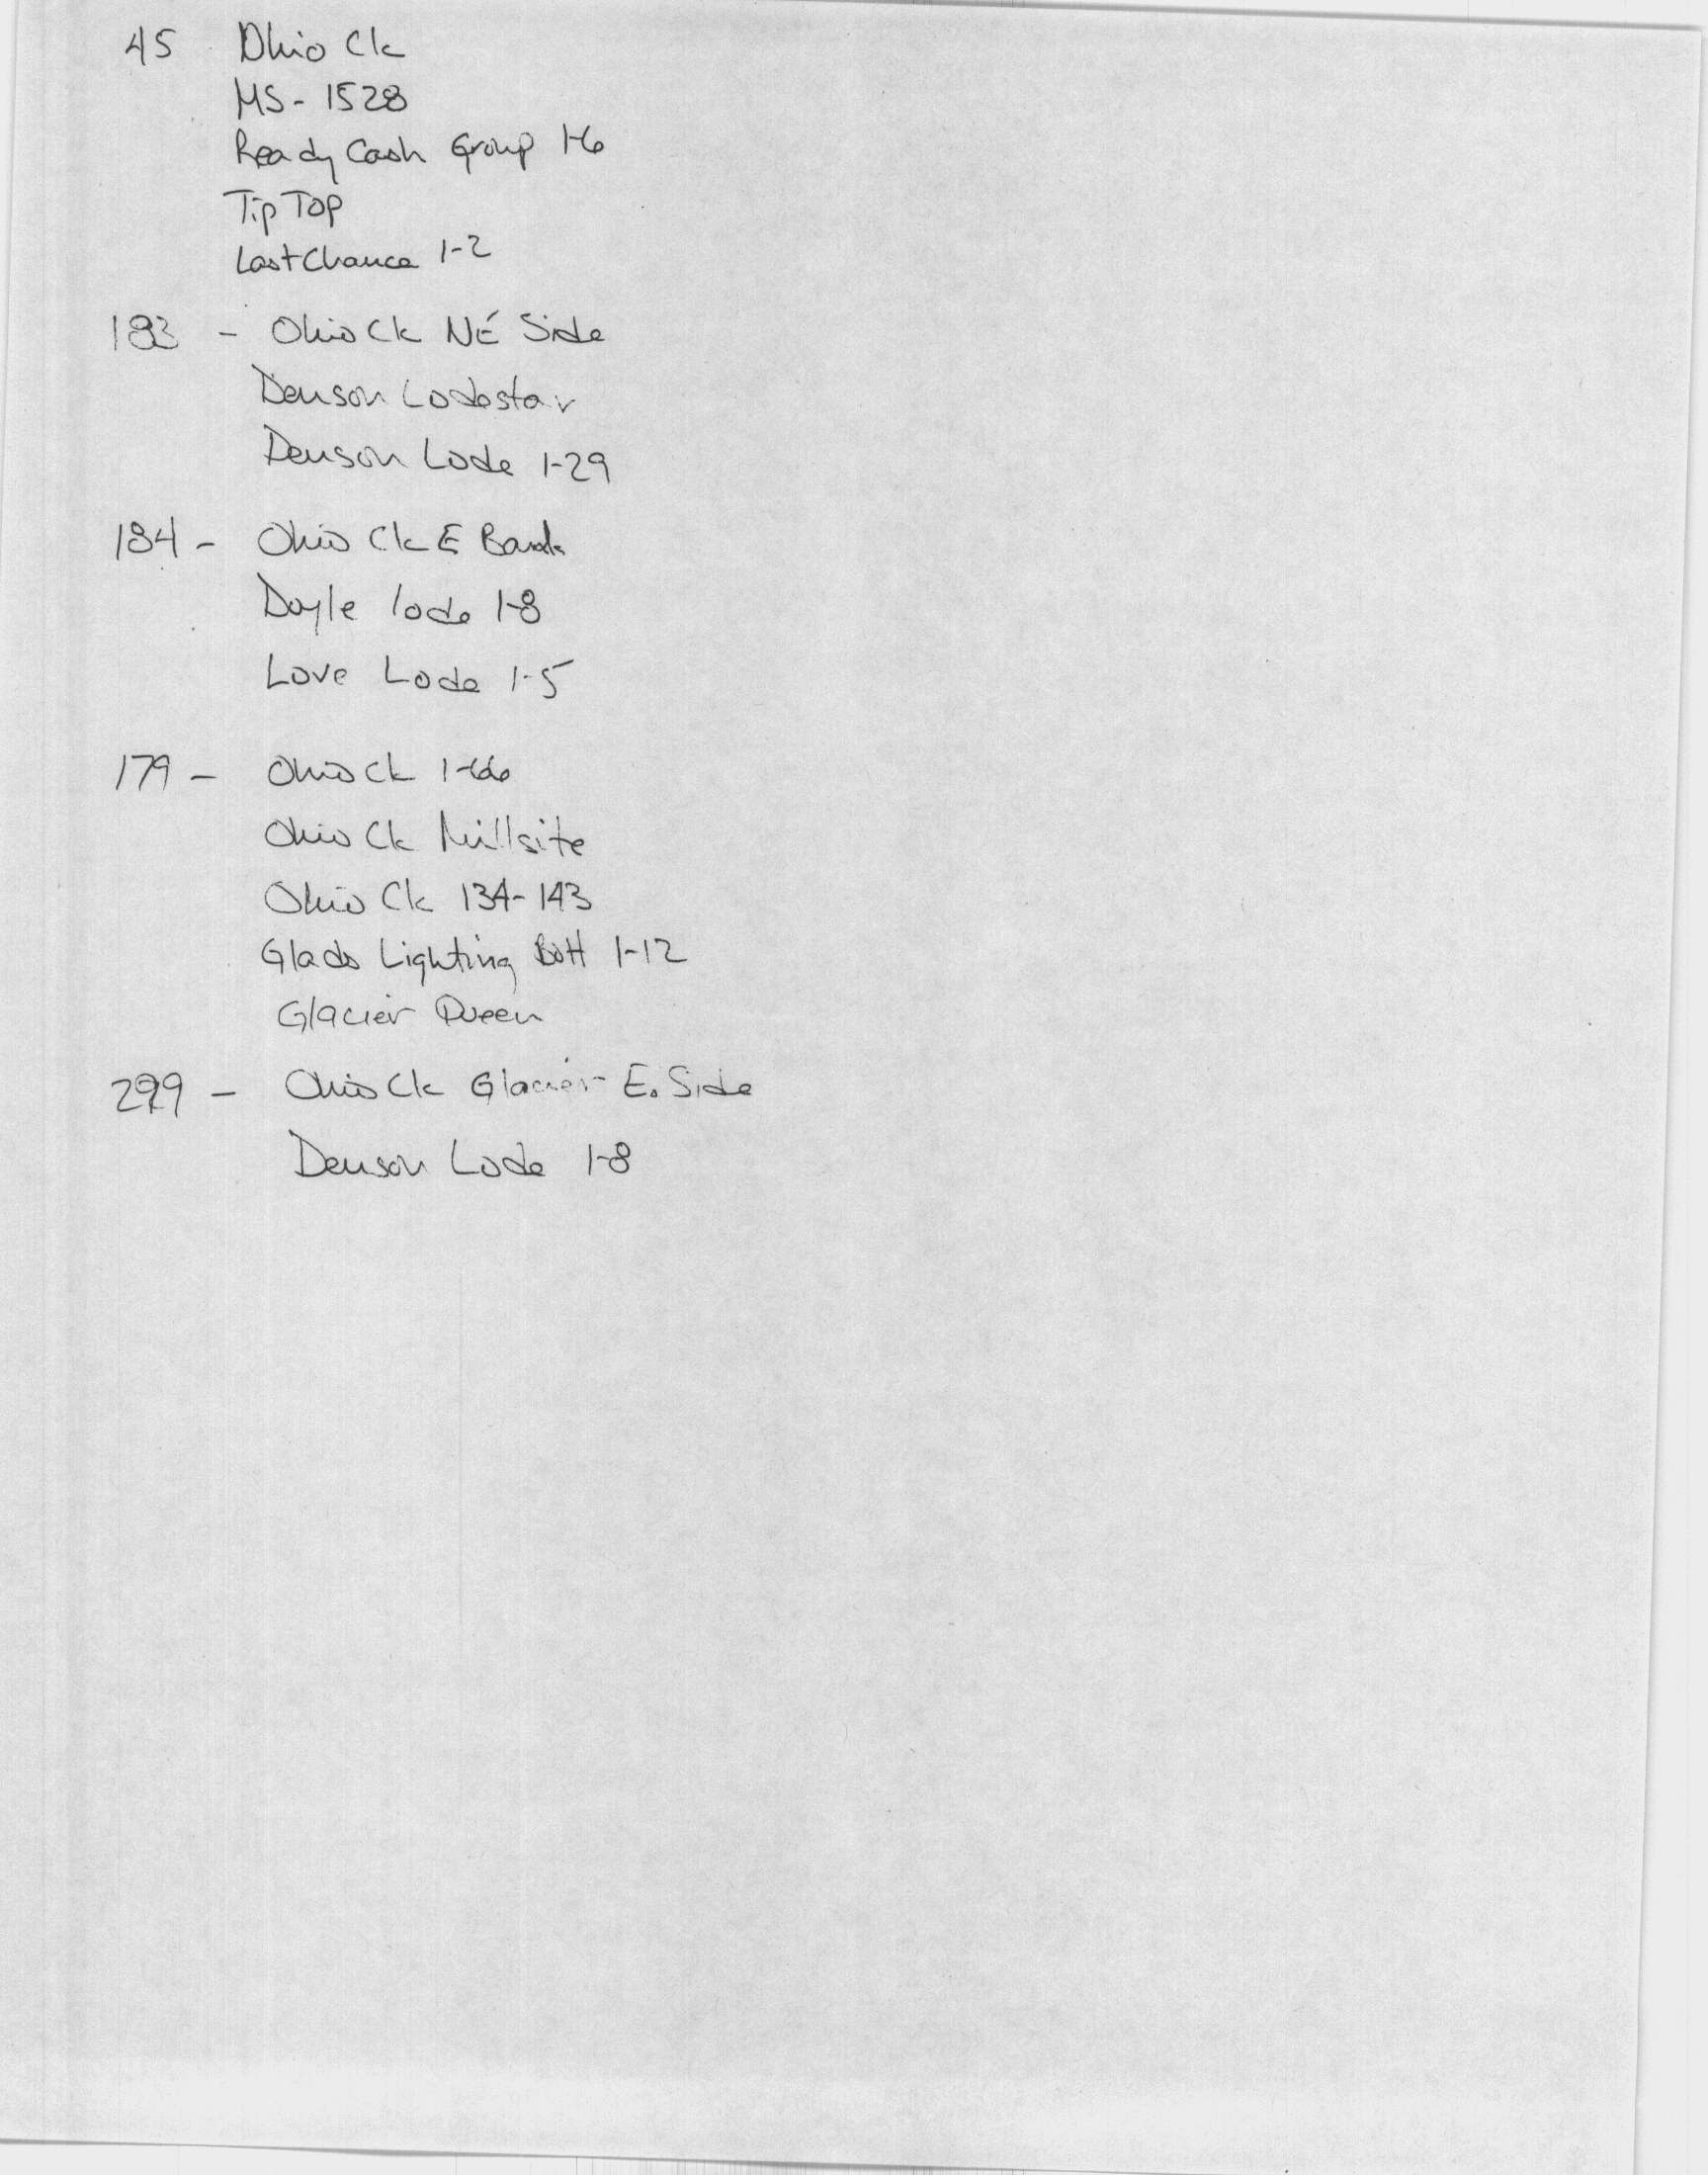 45 Ohio Ck
MS - 1528
Ready Cash Group 1-6
Tip Top
Last Chance 1-2
183 - Ohio Ck NE Side
Denson Lodestar
Denson Lode 1-29
184 - Ohio Ck E Bank
Doyle lode 1-8
Love Lode 1-5
179 - Ohio Ck 1-66
Ohio Ck Millsite
Ohio Ck 134-143
Glads Lighting Bott 1-12
Glacier Queen
299 - Ohio Ck Glacier E. Side
Denson Lode 1-8